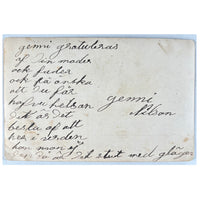 genni gratuleras
af din moder
ock fader
ock få önska
att du får
hafva helsan
det är det
bästa af allt
her i verlden
hon man
slut med
genni
Nilson